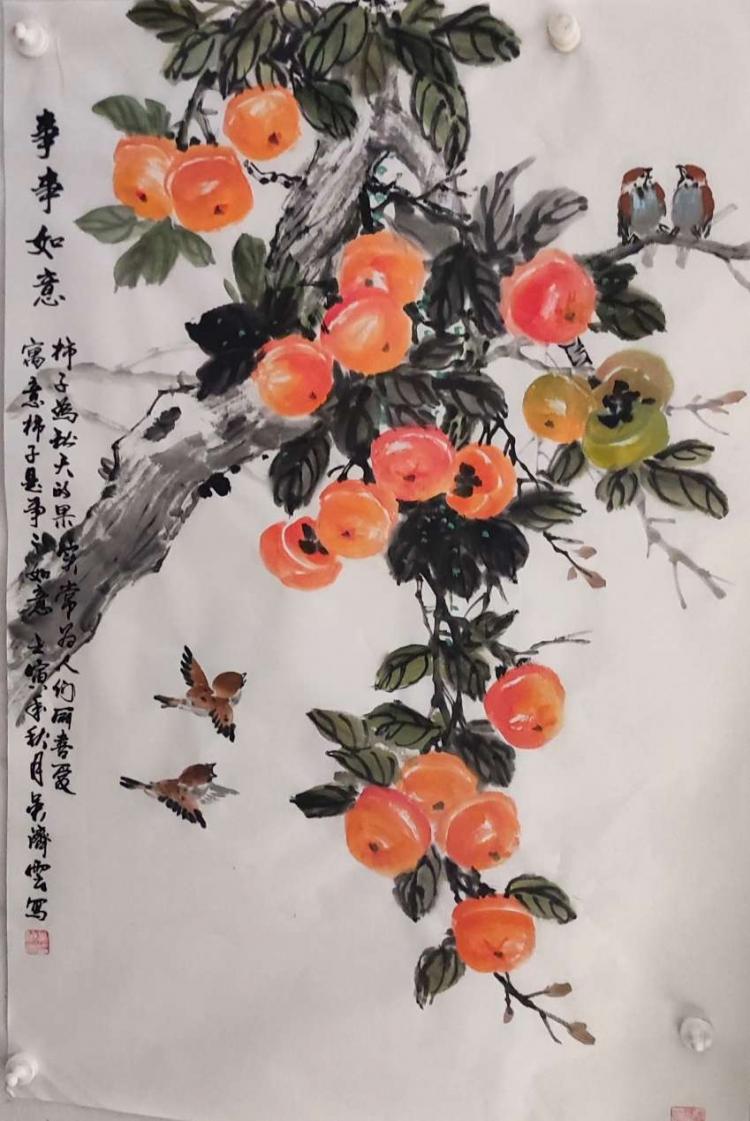 事事如意
柿子為秋天的果实常为人们所喜爱
寓意柿子是事之如意 壬寅年秋月吴濟雲写